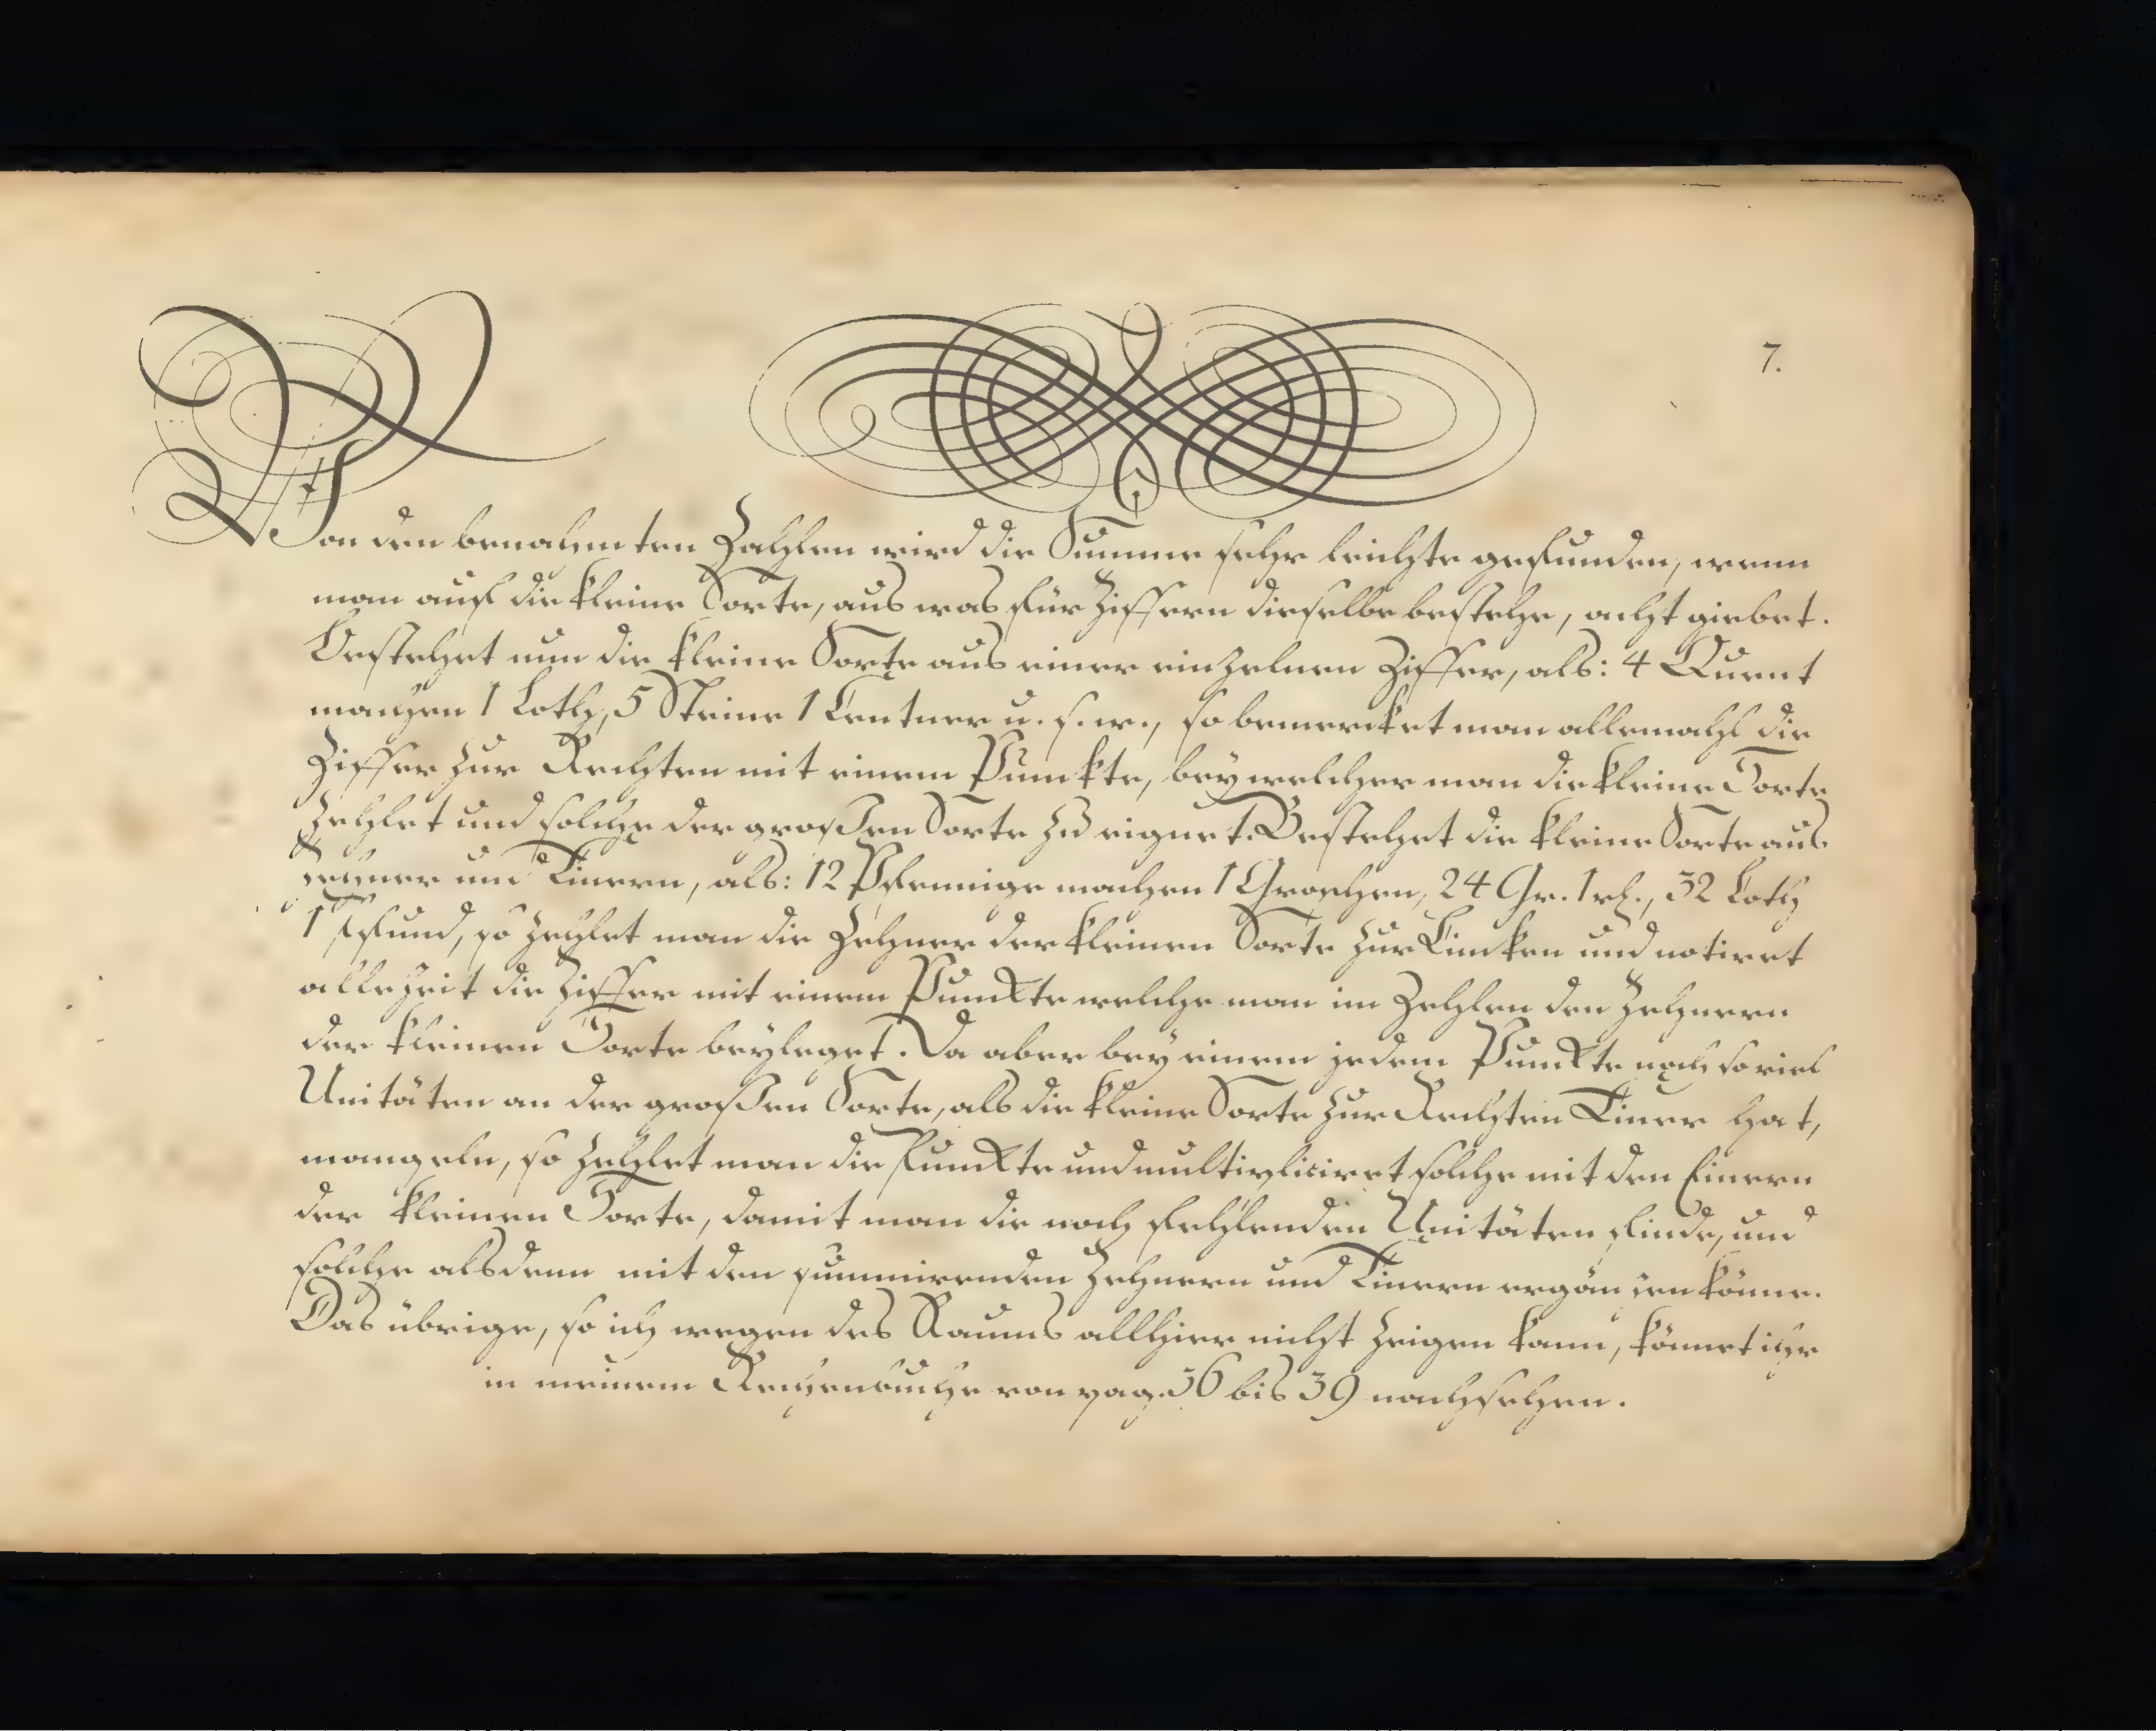 7.
Von den benahmten Zahlen wird die Summe sehr leichte gefunden, wenn
man auf die kleine Sorte, aus was für Ziffern dieselbe bestehe, acht giebet.
Bestehet nun die kleine Sorte aus einer einzelnen Ziffer, als: 4 Quent
machen 1 Loth, 5 Steine 1 Centner u. s. w., so bemercket man allemahl die
Ziffer zur Rechten mit einem Punkte, bey welcher man die kleine Sorte
zehlet und solche der großen Sorte zu eignet. Bestehet die kleine Sorte aus
Zehner und Einern, als: 12 Pfennige machen 1 Groschen, 24 Gr. 1 rh., 32 Loth
1 Pfund, so zehlet man die Zehner der kleinen Sorte zur Lincken und notiret
allezeit die Ziffer mit einem Punckte welche man im Zehlen den Zehnern
der kleinen Sorte beyleget. Da aber bey einem jedem Punckte noch so viel
Unitäten an der großen Sorte, als die kleine Sorte zur Rechten Einer hat,
mangeln, so zehlet man die Punckte und multipliciret solche mit den Einern
der kleinen Sorte, damit man die noch fehlenden Unitäten finde, und
solche alsdenn mit den summirenden Zehnern und Einern ergänzen könne.
Das übrige, so ich wegen des Raums allhier nicht zeigen kann, könnet ihr
in meinem Rechenbuche von pag. 36 bis 39 nachsehen.